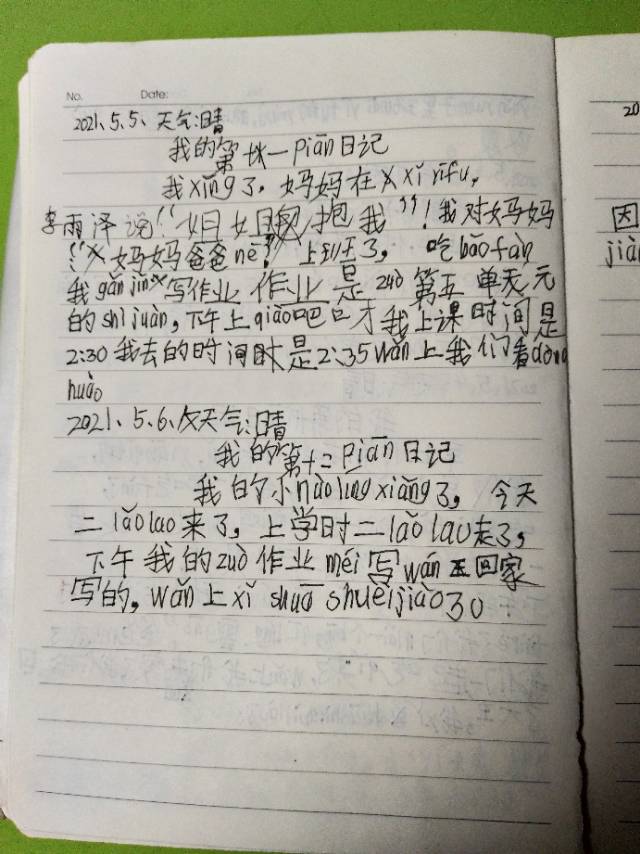 No. Date:
2021、5、5、天气:晴
我的第十一piān日记
我xǐng了,妈妈在xǐ yīfu,
20
李雨泽说"姐姐抱我"!我对妈妈
因
"妈妈爸爸ne?" 上班了, 吃bǎo fàn
jiàn
我gǎn jǐn写作业 作业是zuò第五单元
的shì juàn,下午上qiāo
我上课时间是
2:30我去的时间是2:35wǎn上我们看dòng
huào
2021、5、6、天气:晴
我的第十二piān日记
我的小nào líng xiǎng了, 今天
二lǎo lao来了,上学时二lǎo lao走了,
下午我的zuò作业méi写wán 回家
写的,wǎn上xǐ shuā shuèi jiào